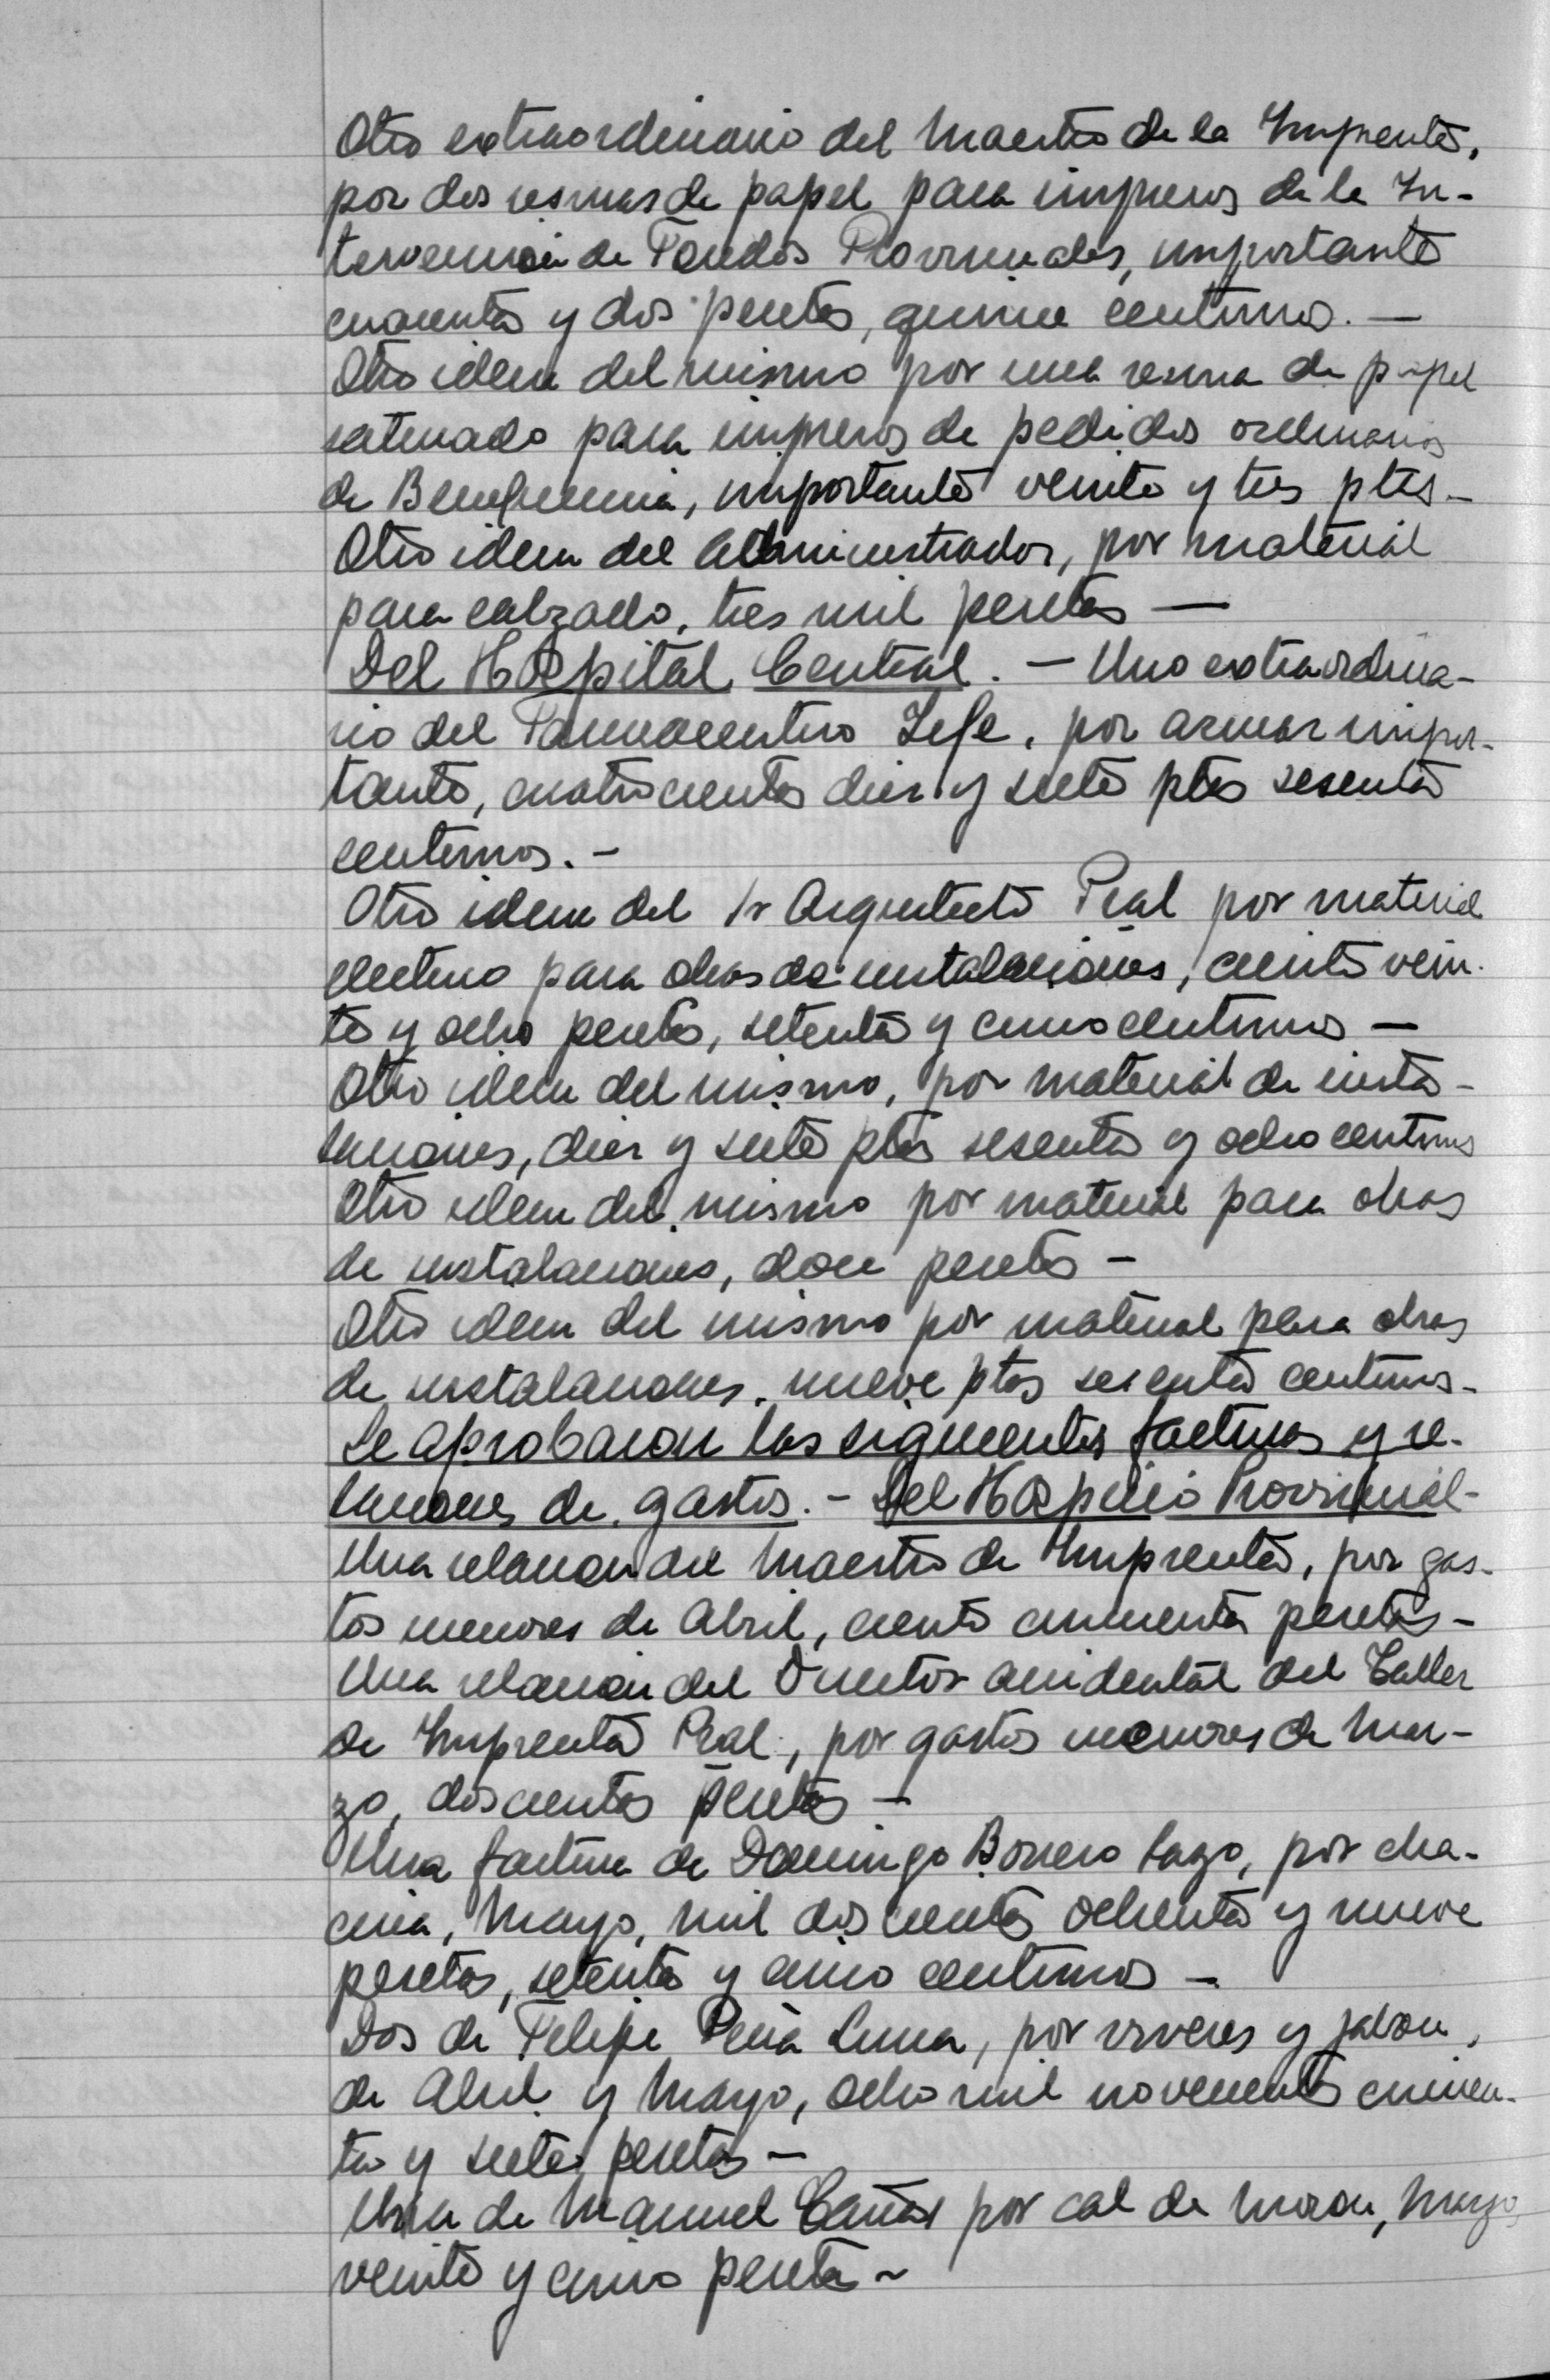 Otro extraordinario del Maestro de la Imprenta,
por dos resmas de papel para impresos de la In-
tervención de Fondos Provinciales, importante
cuarenta y dos pesetas, quince centimos. —
Otro idem del mismo por una resma de papel
satinado para impresos de pedidos ordinarios
de Beneficencia, importante veinte y tres ptas -
Otro idem del Administrador, por material
para calzado, tres mil pesetas —
Del Hospital Central. — Uno extraordina-
rio del Farmaceutico Jefe, por azucar impor-
tante, cuatrocientas diez y siete ptas sesenta
centimos. -
Otro idem del Sr Arquitecto Pral por material
electrico para obras de instalaciones, ciento vein-
te y ocho pesetas, setenta y cinco centimos —
Otro idem del mismo, por material de insta-
laciones, diez y siete ptas sesenta y ocho centimos
Otro idem del mismo por material para obras
de instalaciones, doce pesetas -
Otro idem del mismo por material para obras
de instalaciones, nueve ptas sesenta centimos -
Se aprobaron las siguientes facturas y re-
laciones de gastos. - Del Hospicio Provincial -
Una relacion del Maestro de Imprenta, por gas-
tos menores de Abril, ciento cincuenta pesetas -
Una relación del Director accidental del Taller
de Imprenta Pral, por gastos menores de Mar-
zo, doscientas pesetas -
Una factura de Domingo Borrero Lazo, por cha-
cina, Mayo, mil doscientas ochenta y nueve
pesetas, setenta y cinco centimos -
Dos de Felipe Peña Luna, por viveres y jabon,
de Abril y Mayo, ocho mil novecientas cincuen-
ta y siete pesetas -
Una de Manuel Cañas por cal de Moron, Mayo,
veinte y cinco pesetas -